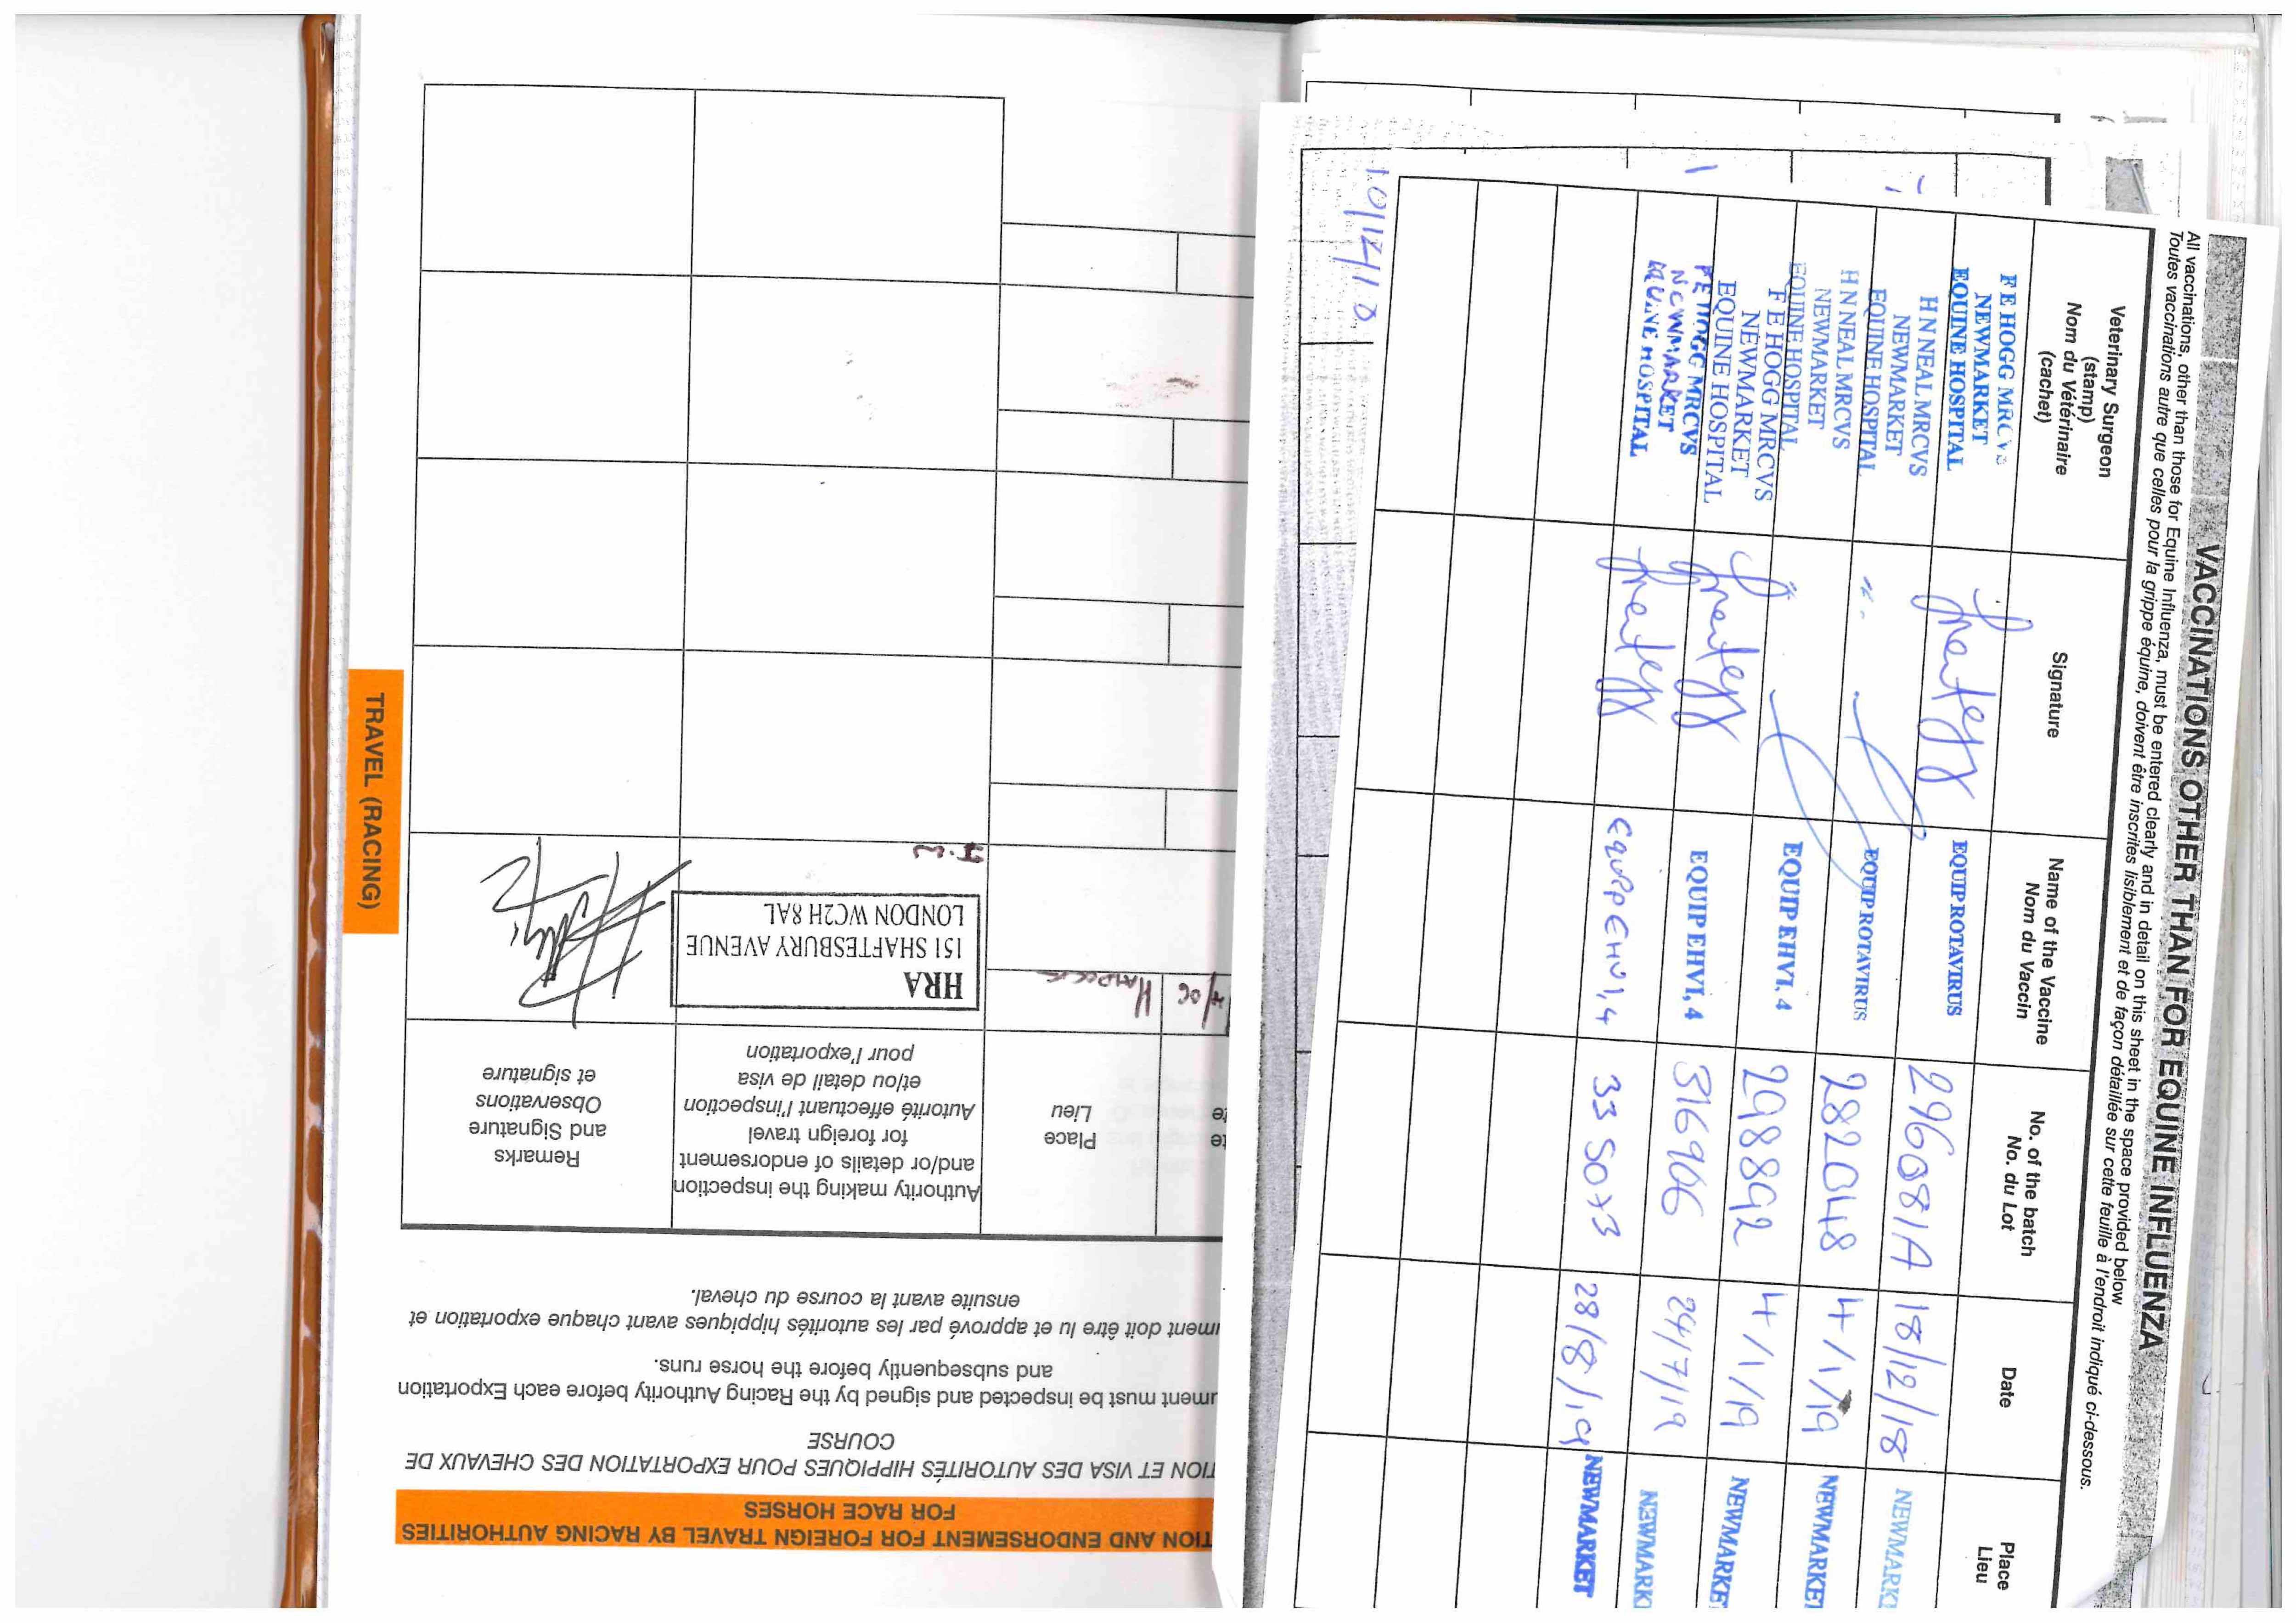 VACCINATIONS OTHER THAN FOR EQUINE INFLUENZA
All vaccinations, other than those for Equine Influenza, must be entered clearly and in detail on this sheet in the space provided below
Toutes vaccinations autre que celles pour la grippe équine, doivent être inscrites lisiblement et de façon détaillée sur cette feuille à l'endroit indiqué ci-dessous.
Place
Lieu
Date
No. of the batch
No. du Lot
Name of the Vaccine
Nom du Vaccin
Signature
Veterinary Surgeon
(stamp)
Nom du Vétérinaire
(cachet)
NEWMARK
18/12/18
296081A
EQUIP ROTAVIRUS
F E HOGG MRCVS
NEWMARKET
EQUINE HOSPITAL
NEWMARKET
4/1/19
282048
EQUIP ROTAVIRUS
H N NEAL MRCVS
NEWMARKET
EQUINE HOSPITAL
NEWMARKE
4/1/19
298892
EQUIP EHV1, 4
H N NEAL MRCVS
NEWMARKET
EQUINE HOSPITAL
NEWMARK
24/7/19
316906
EQUIP EHV1, 4
F E HOGG MRCVS
NEWMARKET
EQUINE HOSPITAL
NEWMARKET
28/8/19
335073
EQUIPP EHV1,4
F E HOGG MRCVS
NEWMARKET
EQUINE HOSPITAL
TION AND ENDORSEMENT FOR FOREIGN TRAVEL BY RACING AUTHORITIES
FOR RACE HORSES
TION ET VISA DES AUTORITÉS HIPPIQUES POUR EXPORTATION DES CHEVAUX DE
COURSE
ument must be inspected and signed by the Racing Authority before each Exportation
and subsequently before the horse runs.
ument doit être lu et apprové par les autorités hippiques avant chaque exportation et
ensuite avant la course du cheval.
te
te
Place
Lieu
Authority making the inspection
and/or details of endorsement
for foreign travel
Autorité effectuant l'inspection
et/ou detail de visa
pour l'exportation
Remarks
and Signature
Observations
et signature
/06
HRA
151 SHAFTESBURY AVENUE
LONDON WC2H 8AL
TRAVEL (RACING)